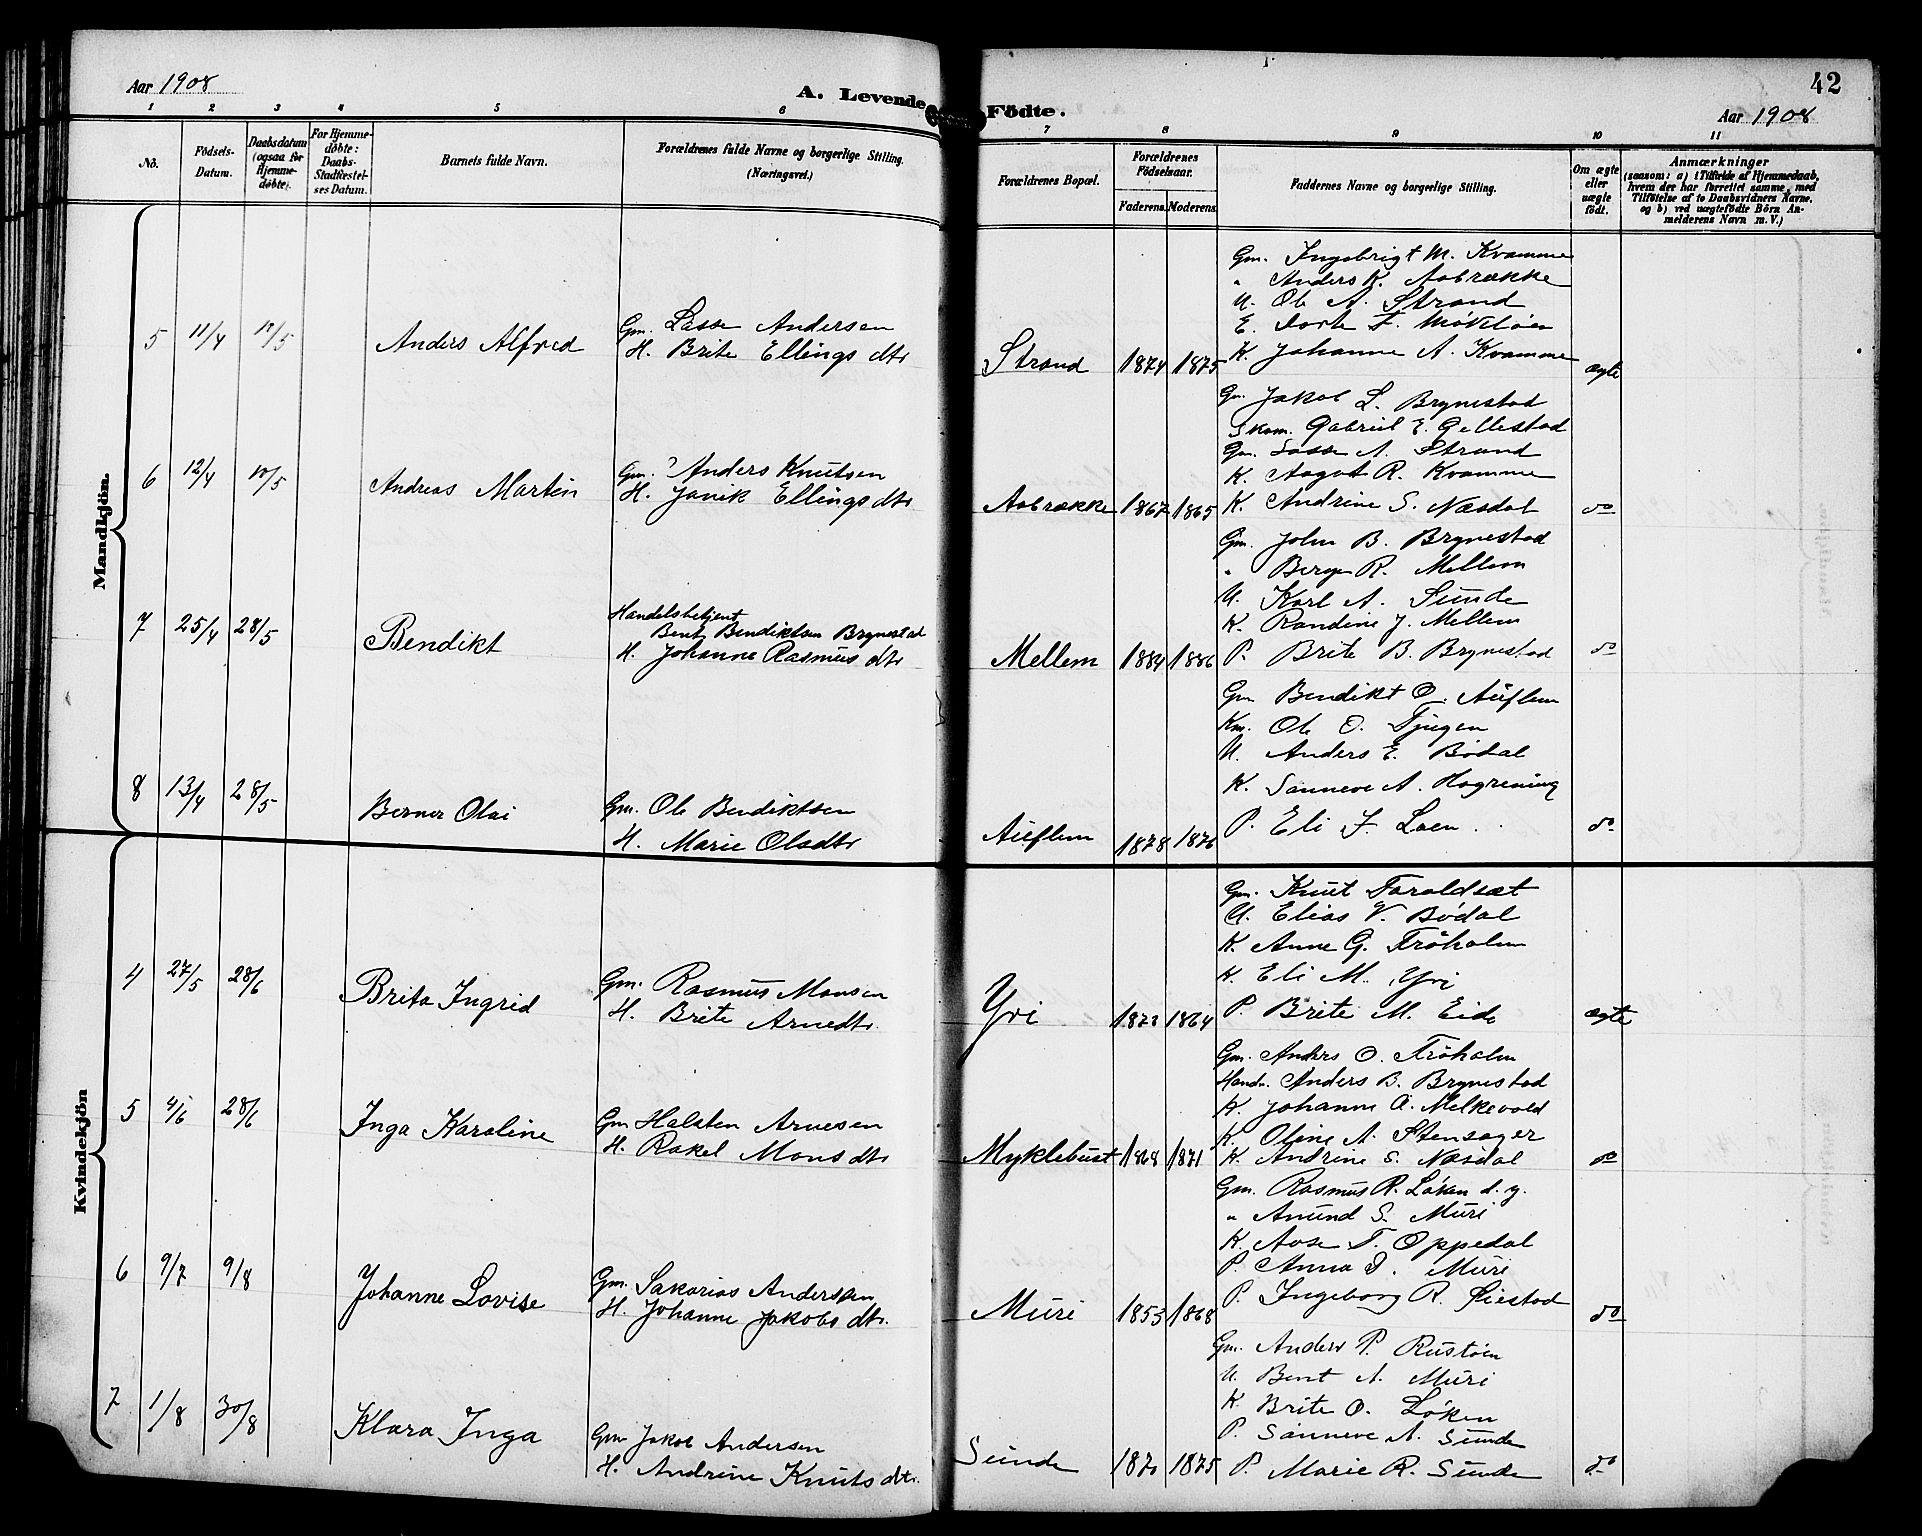 Aar 1908
A. Levende Födte.
42
Aar 1908
1 2 3 4 5 6 7 8 9 10 11
No.
Födsels-Datum.
Daabsdatum (ogsaa for Hjemme-döbte).
For Hjemme-döbte: Daabs-Stadfæstel-ses Datum.
Barnets fulde Navn.
Forældrenes fulde Navne og borgerlige Stilling. (Næringsvei.)
Forældrenes Bopæl.
Forældrenes Födselsaar.
Faderens. Moderens.
Faddernes Navne og borgerlige Stilling.
Om ægte eller uægte födt.
Anmærkninger
(saasom: a) i Tilfælde af Hjemmedaab, hvem der har forrettet samme, med Tilföielse af to Daabsvidners Navne, og b) ved uægtefödte Börn An-melderens Navn m. V.)
Mandkjön.
5 11/4 17/5 Anders Alfred
Gm. Lasse Andersen
H. Brite Ellings dtr
Strand 1874 1875
Gm. Ingebrigt M. Kvamme
" Anders K. Aabrække
U. Ole A. Strand
E. Dorte F. Möklöen
K. Johanne A. Kvamme ægte
6 12/4 10/5 Andreas Martin
Gm. ? Anders Knutsen
H. Janik Ellings dtr
Aabrække 1867 1865
Gm. Jakob L. Brynestad
Skom. Gabriel E. Gellestad
Gm. Lasse A. Strand
K. Aagot R. Kvamme
K. Andrine S. Næsdal do
7 25/4 28/5 Bendikt
Handelsbetjent
Bent Bendiktsen Brynestad
H. Johanne Rasmus dtr
Mellem 1884 1886
Gm. John B. Brynestad
" Berge R. Mellem
U. Karl A. Sunde
K. Randine J. Mellem
P. Brite B. Brynestad do
8 13/4 28/5 Berner Olai
Gm. Ole Bendiktsen
H. Marie Olsdtr
Auflem 1878 1876
Gm Bendikt O. Auflem
Km. Ole O. Tjugen
U. Anders E. Bödal
K. Sanneve A. Hogrening
P. Eli J. Loen do
Kvindekjön
4 27/5 28/6 Brita Ingrid
Gm. Rasmus Monsen
H. Brite Arnedtr.
Yri 1864
Gm. Knut Taraldset
U. Elias V. Bödal
K. Anne G. Tröholm
K. Eli M. Yri
P. Brite M. Eide ægte
5 4/6 28/6 Inga Karoline
Gm Halsten Arnesen
H. Rakel Mons dtr
Myklebust 1868 1871
Gm. Anders O. Tröholm
Handv. Anders B. Brynestad
K. Johanne A. Melkevold
K. Oline A. Stensager
K. Andrine S. Næsdal do
6 9/7 9/8 Johanne Lovise
Gm. Sakarias Andersen
H. Johanne Jakobs dtr.
Muri 1853 1868
Gm. Rasmus R. Löken d. y.
" Anund S. Muri
K. Aase T. Oppedal
P. Anna I. Muri
P. Ingeborg R. Öiestad do
7 1/8 30/8 Klara Inga
Gm Jakob Andersen
H. Andrine Knuts dtr.
Sunde 1870 1875
Gm. Anders P. Rustöen
U. Bent A. Muri
K Brite O. Löken
P. Sanneve A. Sunde
P. Marie R. Sunde do